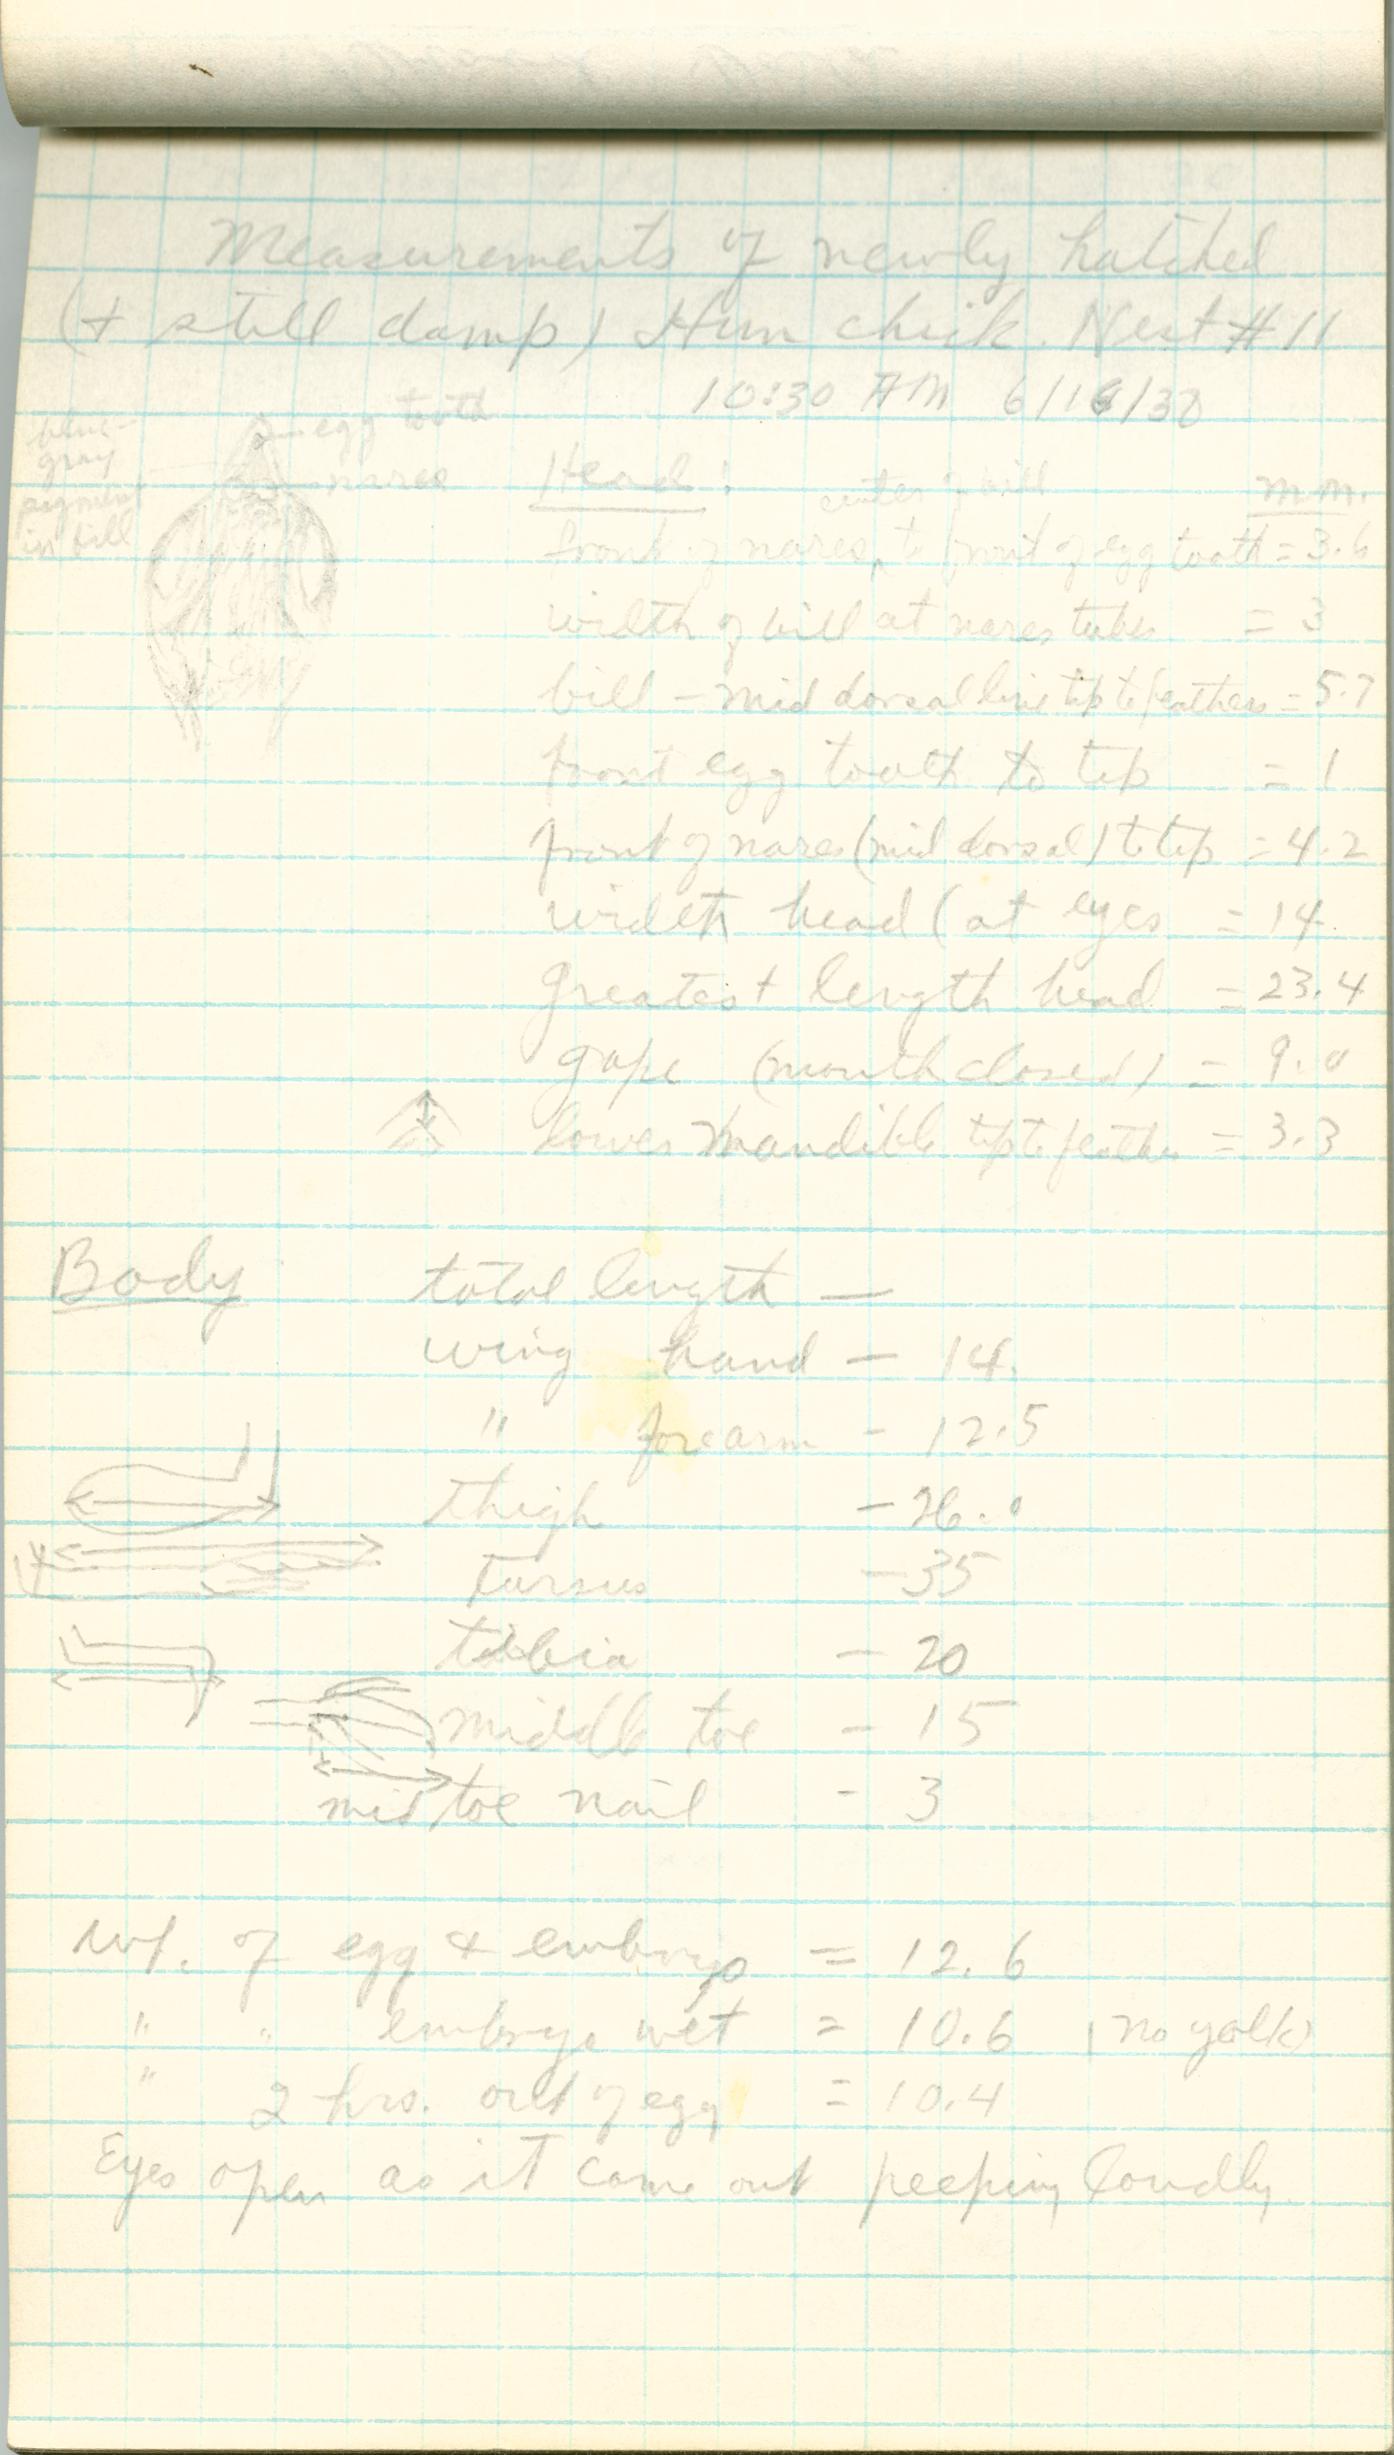 Measurements of newly hatched
(+ still damp) Hun chick. Nest #11
10:30 AM 6/16/38
egg tooth
nares
blue-
gray
pigment
in bill
Head: m.m.
center of bill
front of nares to front of egg tooth = 3.6
width of bill at nares tubes = 3
bill - mid dorsal line tip to feathers = 5.7
front egg tooth to tip = 1
front of nares (mid dorsal) to tip = 4.2
width head (at eyes = 14
greatest length head = 23.4
gape (mouth closed) = 9.0
lower mandible tip to feathers = 3.3
Body total length —
wing hand — 14.
" forearm - 12.5
thigh - 26.0
tarsus - 35
tibbia - 20
middle toe - 15
mid toe nail - 3
wt. of egg & embryo = 12.6
" " embryo wet = 10.6 (no yolk)
" 2 hrs. out of egg = 10.4
Eyes open as it came out peeping loudly.